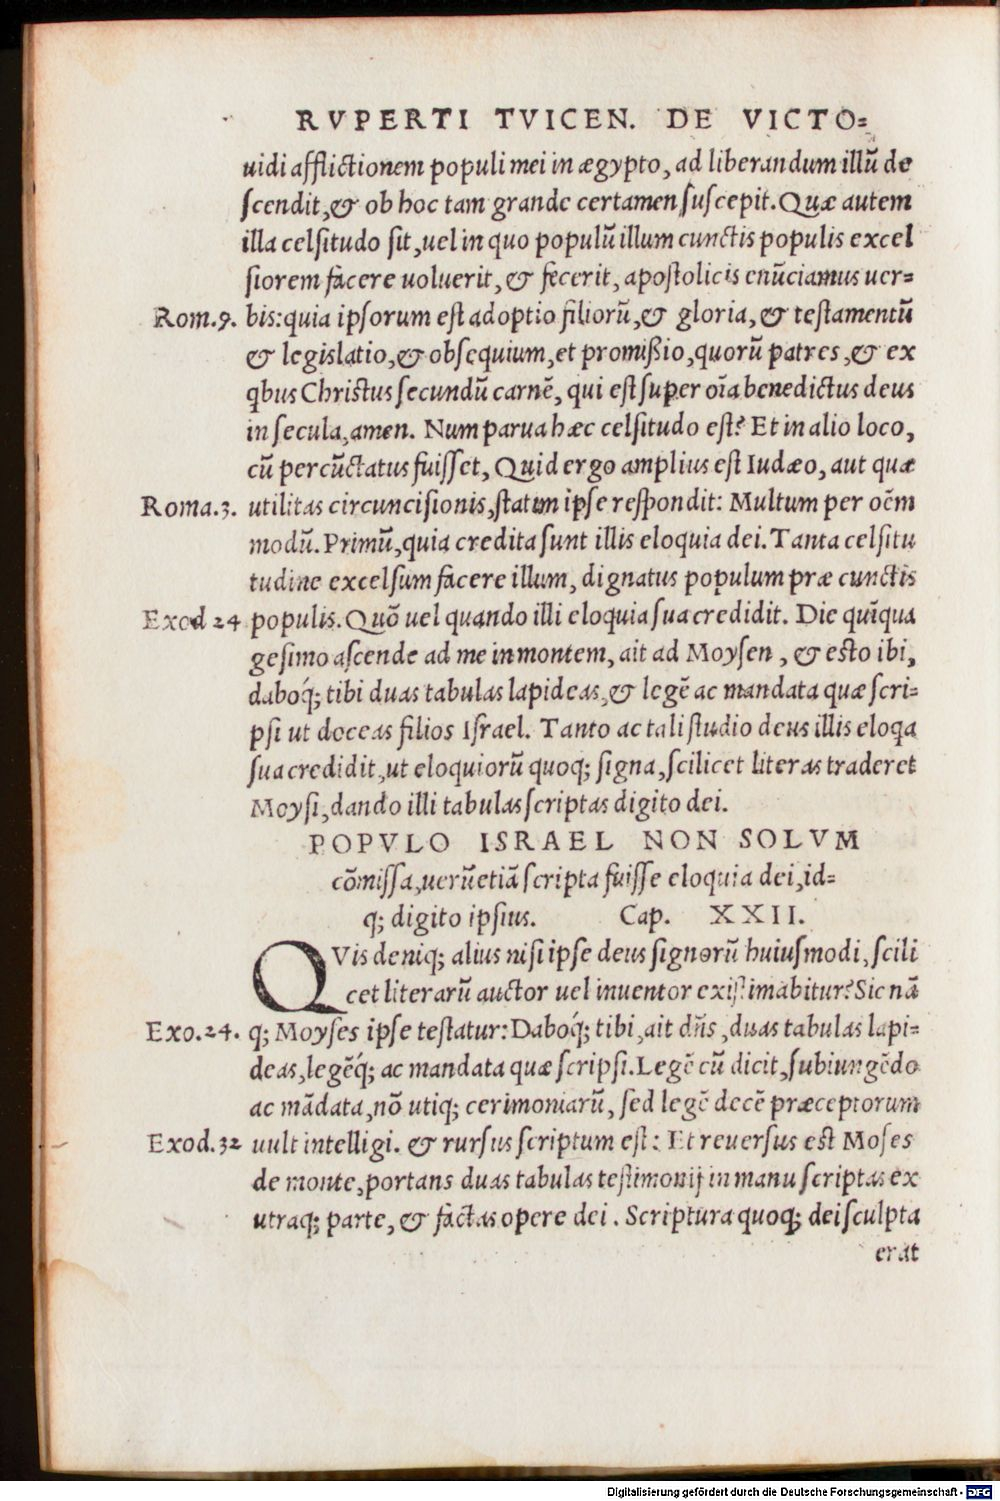 RVPERTI TVICEN. DE VICTO=
uidi afflictionem populi mei in ægypto, ad liberandum illũ de
ſcendit, & ob hoc tam grande certamen ſuſcepit. Quæ autem
illa celſitudo ſit, uel in quo populũ illum cunctis populis excel
ſiorem facere uoluerit, & fecerit, apoſtolicis enũciamus uer=
Rom.9. bis: quia ipſorum eſt adoptio filiorũ, & gloria, & teſtamentũ
& legislatio, & obſequium, et promißio, quorũ patres, & ex
qbus Chriſtus ſecundũ carnẽ, qui eſt ſuper oĩa benedictus deus
in ſecula, amen. Num parua hæc celſitudo eſt? Et in alio loco,
cũ percũctatus fuiſſet, Quid ergo amplius eſt Iudæo, aut quæ
Roma.3. utilitas circunciſionis, ſtatim ipſe reſpondit: Multum per oẽm
modũ. Primũ, quia credita ſunt illis eloquia dei. Tanta celſitu
tudine excelſum facere illum, dignatus populum præ cunctis
Exod 24 populis. Quõ uel quando illi eloquia ſua credidit. Die quĩqua
geſimo aſcende ad me in montem, ait ad Moyſen, & eſto ibi,
daboq́; tibi duas tabulas lapideas, & legẽ ac mandata quæ ſcri=
pſi ut doceas filios Iſrael. Tanto ac tali ſtudio deus illis eloqa
ſua credidit, ut eloquiorũ quoq; ſigna, ſcilicet literas traderet
Moyſi, dando illi tabulas ſcriptas digito dei.
POPVLO ISRAEL NON SOLVM
cõmiſſa, uerũetiã ſcripta fuiſſe eloquia dei, id=
q; digito ipſius. Cap. XXII.
QVis deniq; alius niſi ipſe deus ſignorũ huiuſmodi, ſcili
cet literarũ auctor uel inuentor exiſtimabitur? Sic nã
Exo.24. q; Moyſes ipſe teſtatur: Daboq́; tibi, ait dñs, duas tabulas lapi=
deas, legẽq́; ac mandata quæ ſcripſi. Legẽ cũ dicit, ſubiungẽdo
ac mãdata, nõ utiq; cerimoniarũ, ſed legẽ decẽ præceptorum
Exod.32 uult intelligi. & rurſus ſcriptum eſt: Et reuerſus eſt Moſes
de monte, portans duas tabulas teſtimonij in manu ſcriptas ex
utraq; parte, & factas opere dei. Scriptura quoq; dei ſculpta
erat
Digitalisierung gefördert durch die Deutsche Forschungsgemeinschaft - DFG